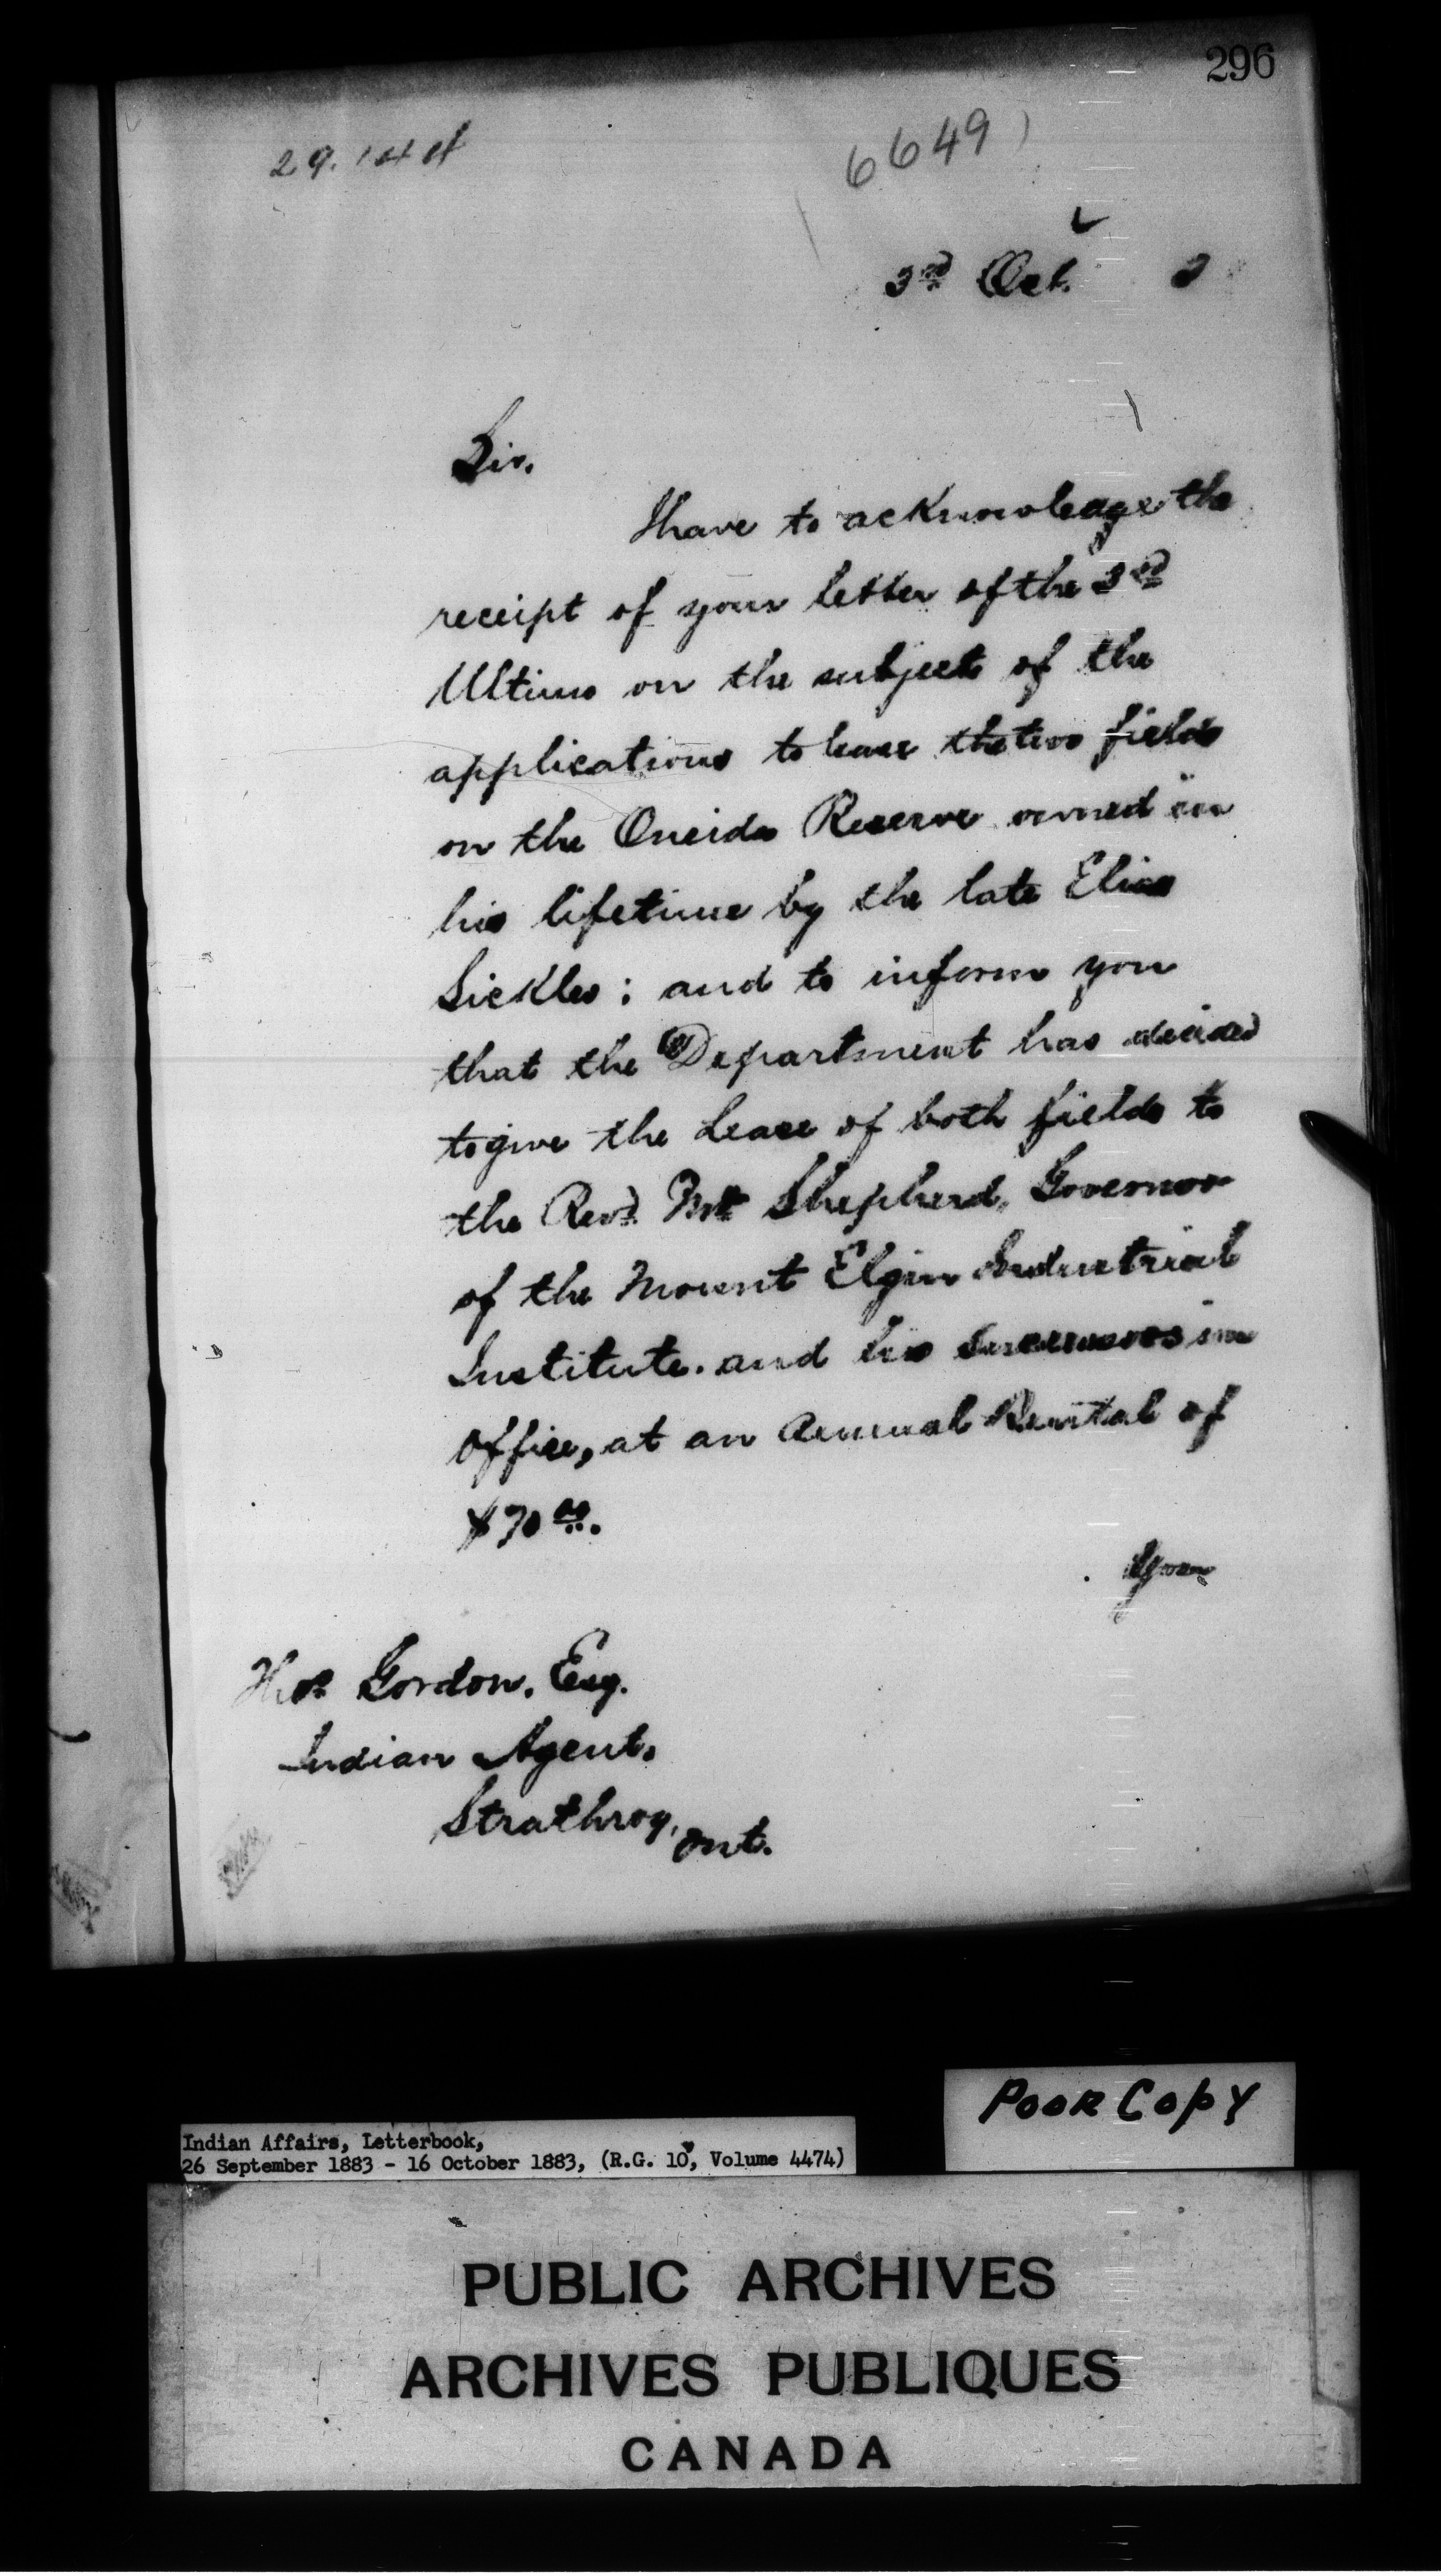 296
6649
3rd Oct. 3
Sir.
I have to acknowledge the
receipt of your letter of the 3rd
Ultimo on the subject of the
applications to lease the two fields
on the Oneida Reserve owned in
his lifetime by the late Elias
Sickles; and to inform you
that the Department has decided
to give the Lease of both fields to
the Revd. Mr Shepherd, Governor
of the Mount Elgin Industrial
Institute. and his Successors in
Office, at an Annual Rental of
$70 00.
Your
Thos Gordon, Esq.
Indian Agent.
Strathroy, Ont.
POOR COPY
Indian Affairs, Letterbook,
26 September 1883 - 16 October 1883, (R.G. 10, Volume 4474)
PUBLIC ARCHIVES
ARCHIVES PUBLIQUES
CANADA